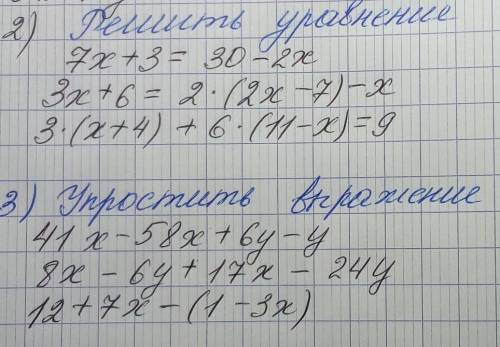 2) Решить уравнение
7x+3 = 30-2x
3x+6 = 2·(2x-7)-x
3·(x+4) + 6·(11-x)=9
3) Упростить выражение
41x-58x+6y-y
8x-6y+17x-24y
12+7x-(1-3x)